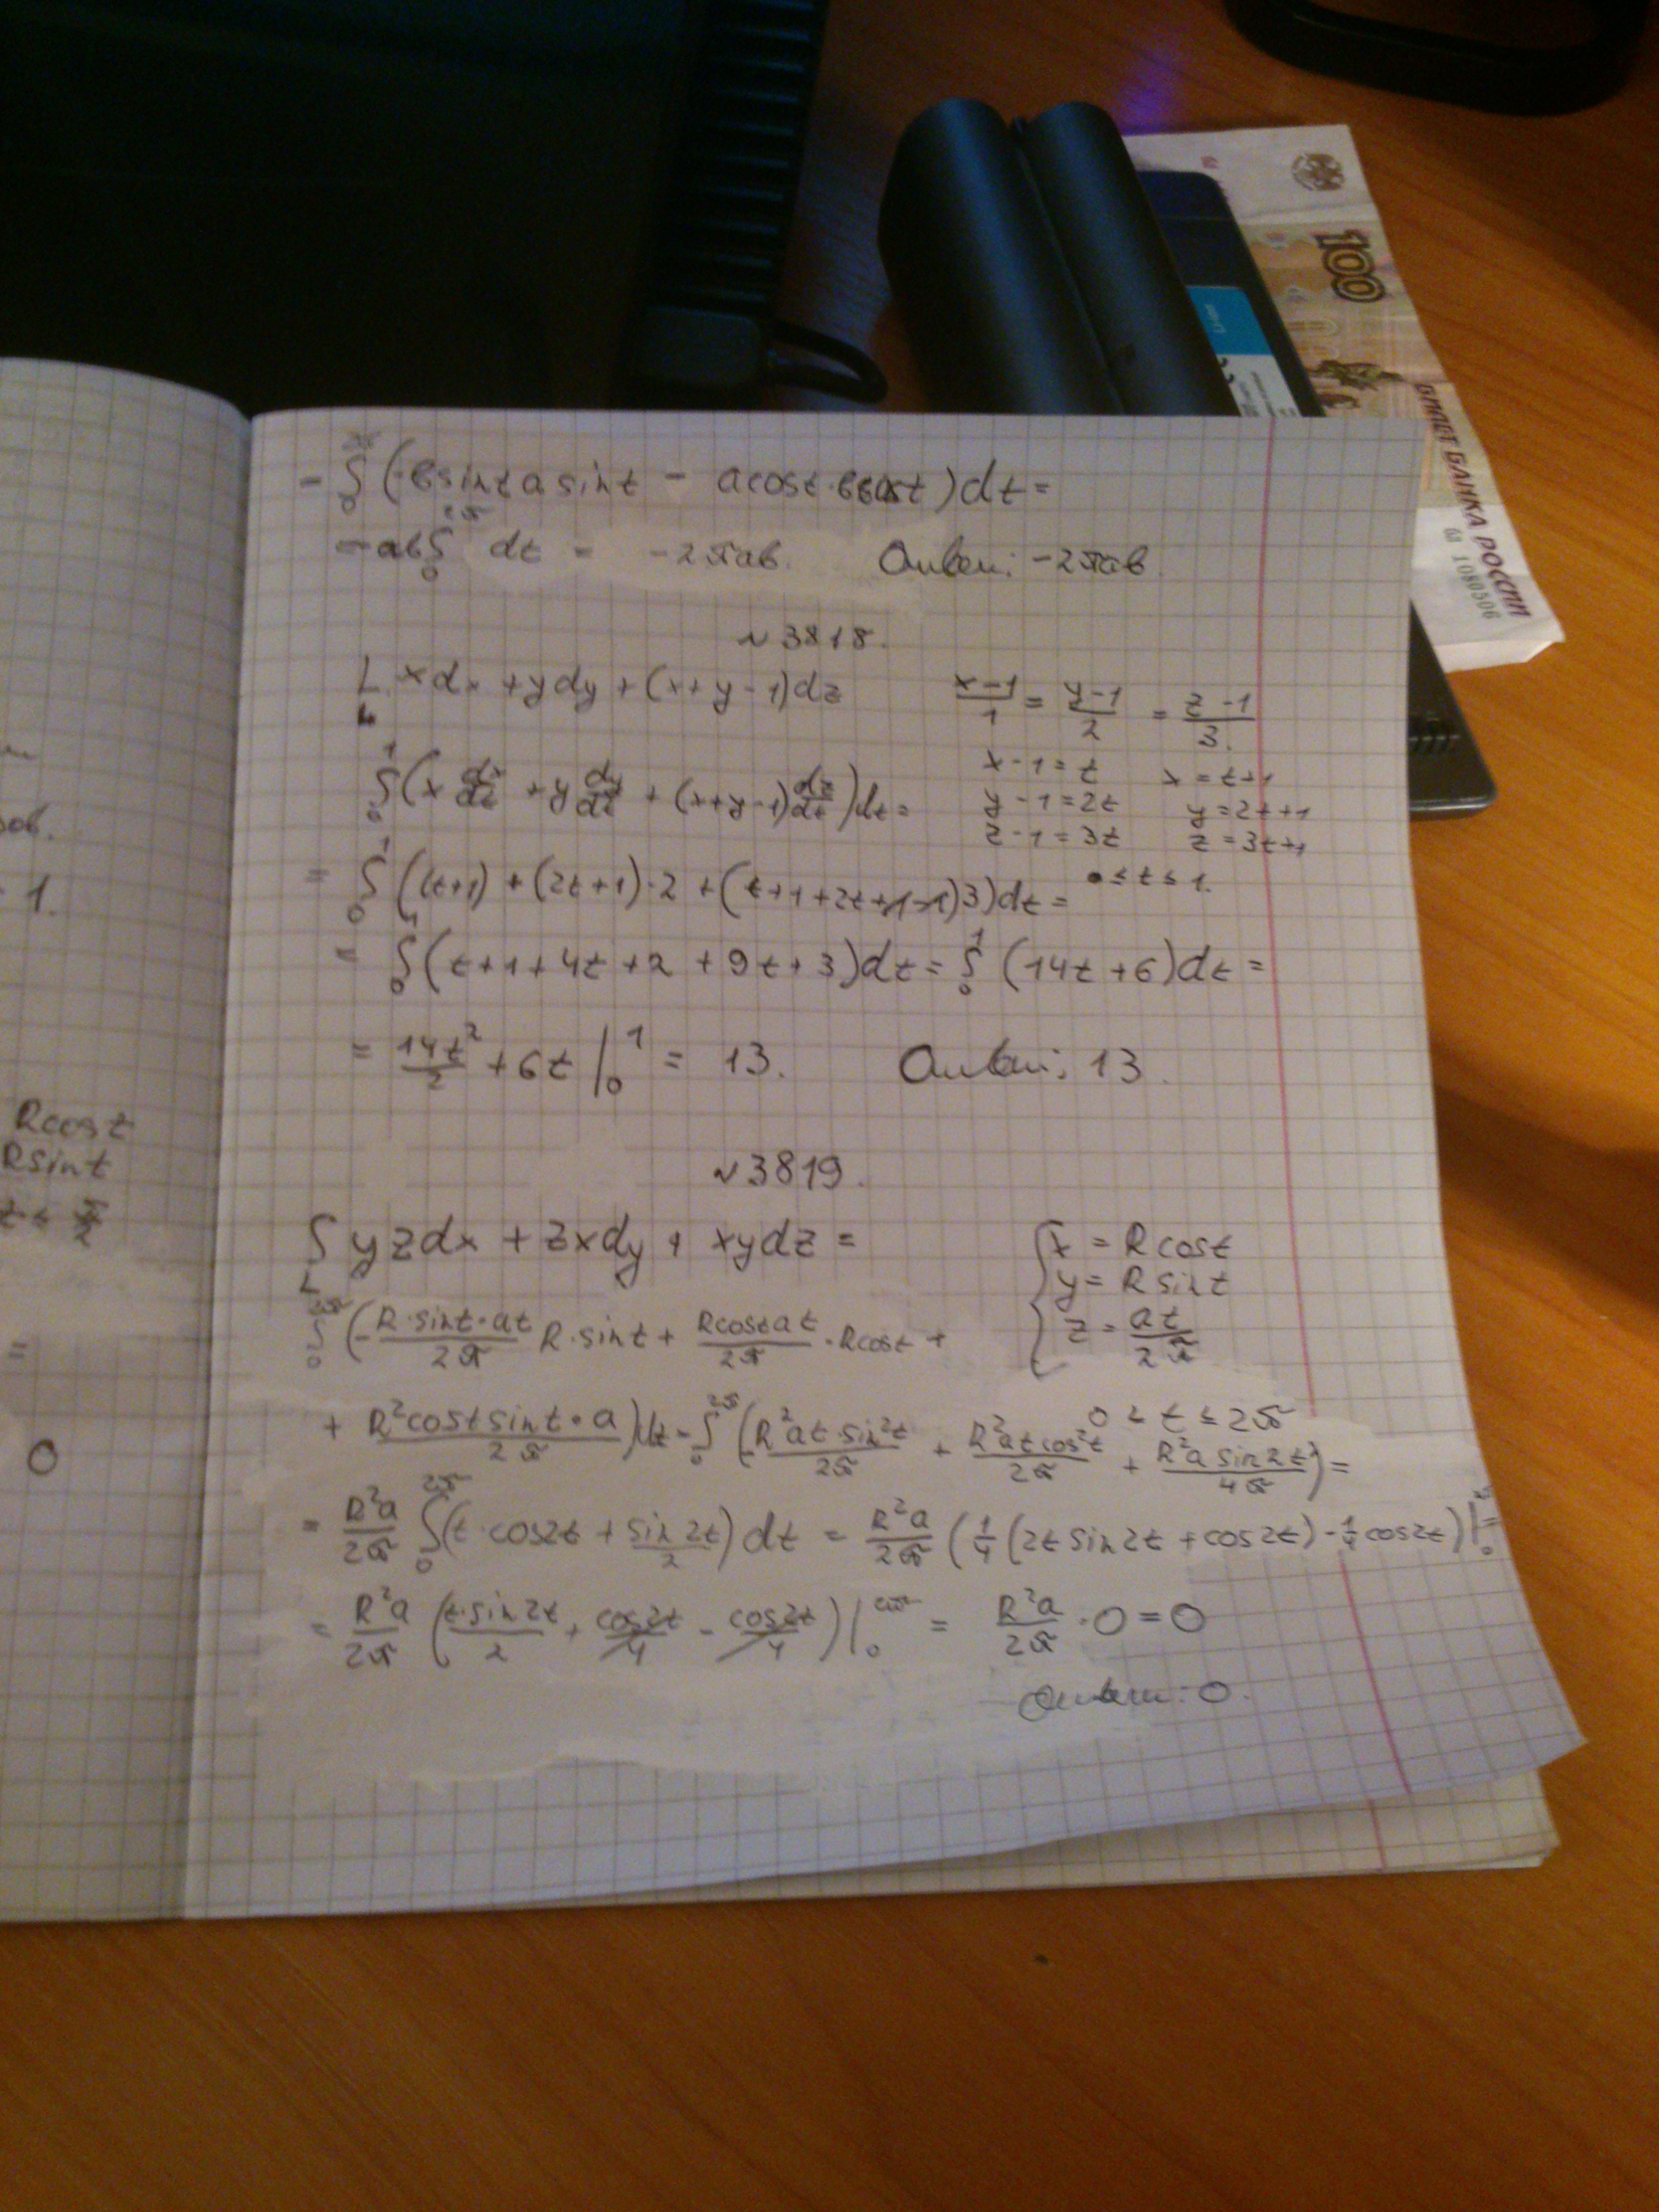 100
БИЛЕТ БАНКА РОССИИ
1080506
Li-ion
= ∫₀^2π (-вsint a sint - acost·вcost)dt =
= -aв∫₀^2π dt = -2πaв. Ответ: -2πaв
№3818.
∫_L xdx + ydy + (x+y-1)dz
(x-1)/1 = (y-1)/2 = (z-1)/3.
x-1=t x=t+1
∫₀^1 (x dx/dt + y dy/dt + (x+y-1) dz/dt)dt =
y-1=2t y=2t+1
z-1=3t z=3t+1
= ∫₀^1 ((t+1) + (2t+1)·2 + (t+1+2t+1-1)3)dt =
0 ≤ t ≤ 1.
= ∫₀^1 (t+1+4t+2+9t+3)dt = ∫₀^1 (14t+6)dt =
= 14t²/2 + 6t |₀^1 = 13. Ответ: 13.
№3819.
∫_L yzdx + zxdy + xydz =
{x = Rcost
y = Rsint
z = at/2π
∫₀^2π (-R·sint·at/2π R·sint + Rcostat/2π · Rcost +
0 ≤ t ≤ 2π
+ R²costsint·a/2π)dt = ∫₀^2π (-R²at·sin²t/2π + R²atcos²t/2π + R²a sin2t/4π) =
= R²a/2π ∫₀^2π (t·cos2t + sin2t/2)dt = R²a/2π (1/4(2t sin2t + cos2t) - 1/4 cos2t)|₀^2π =
= R²a/2π (t·sin2t/2 + cos2t/4 - cos2t/4)|₀^2π = R²a/2π · 0 = 0
Ответ: 0.
1.
Rcost
Rsint
=
0